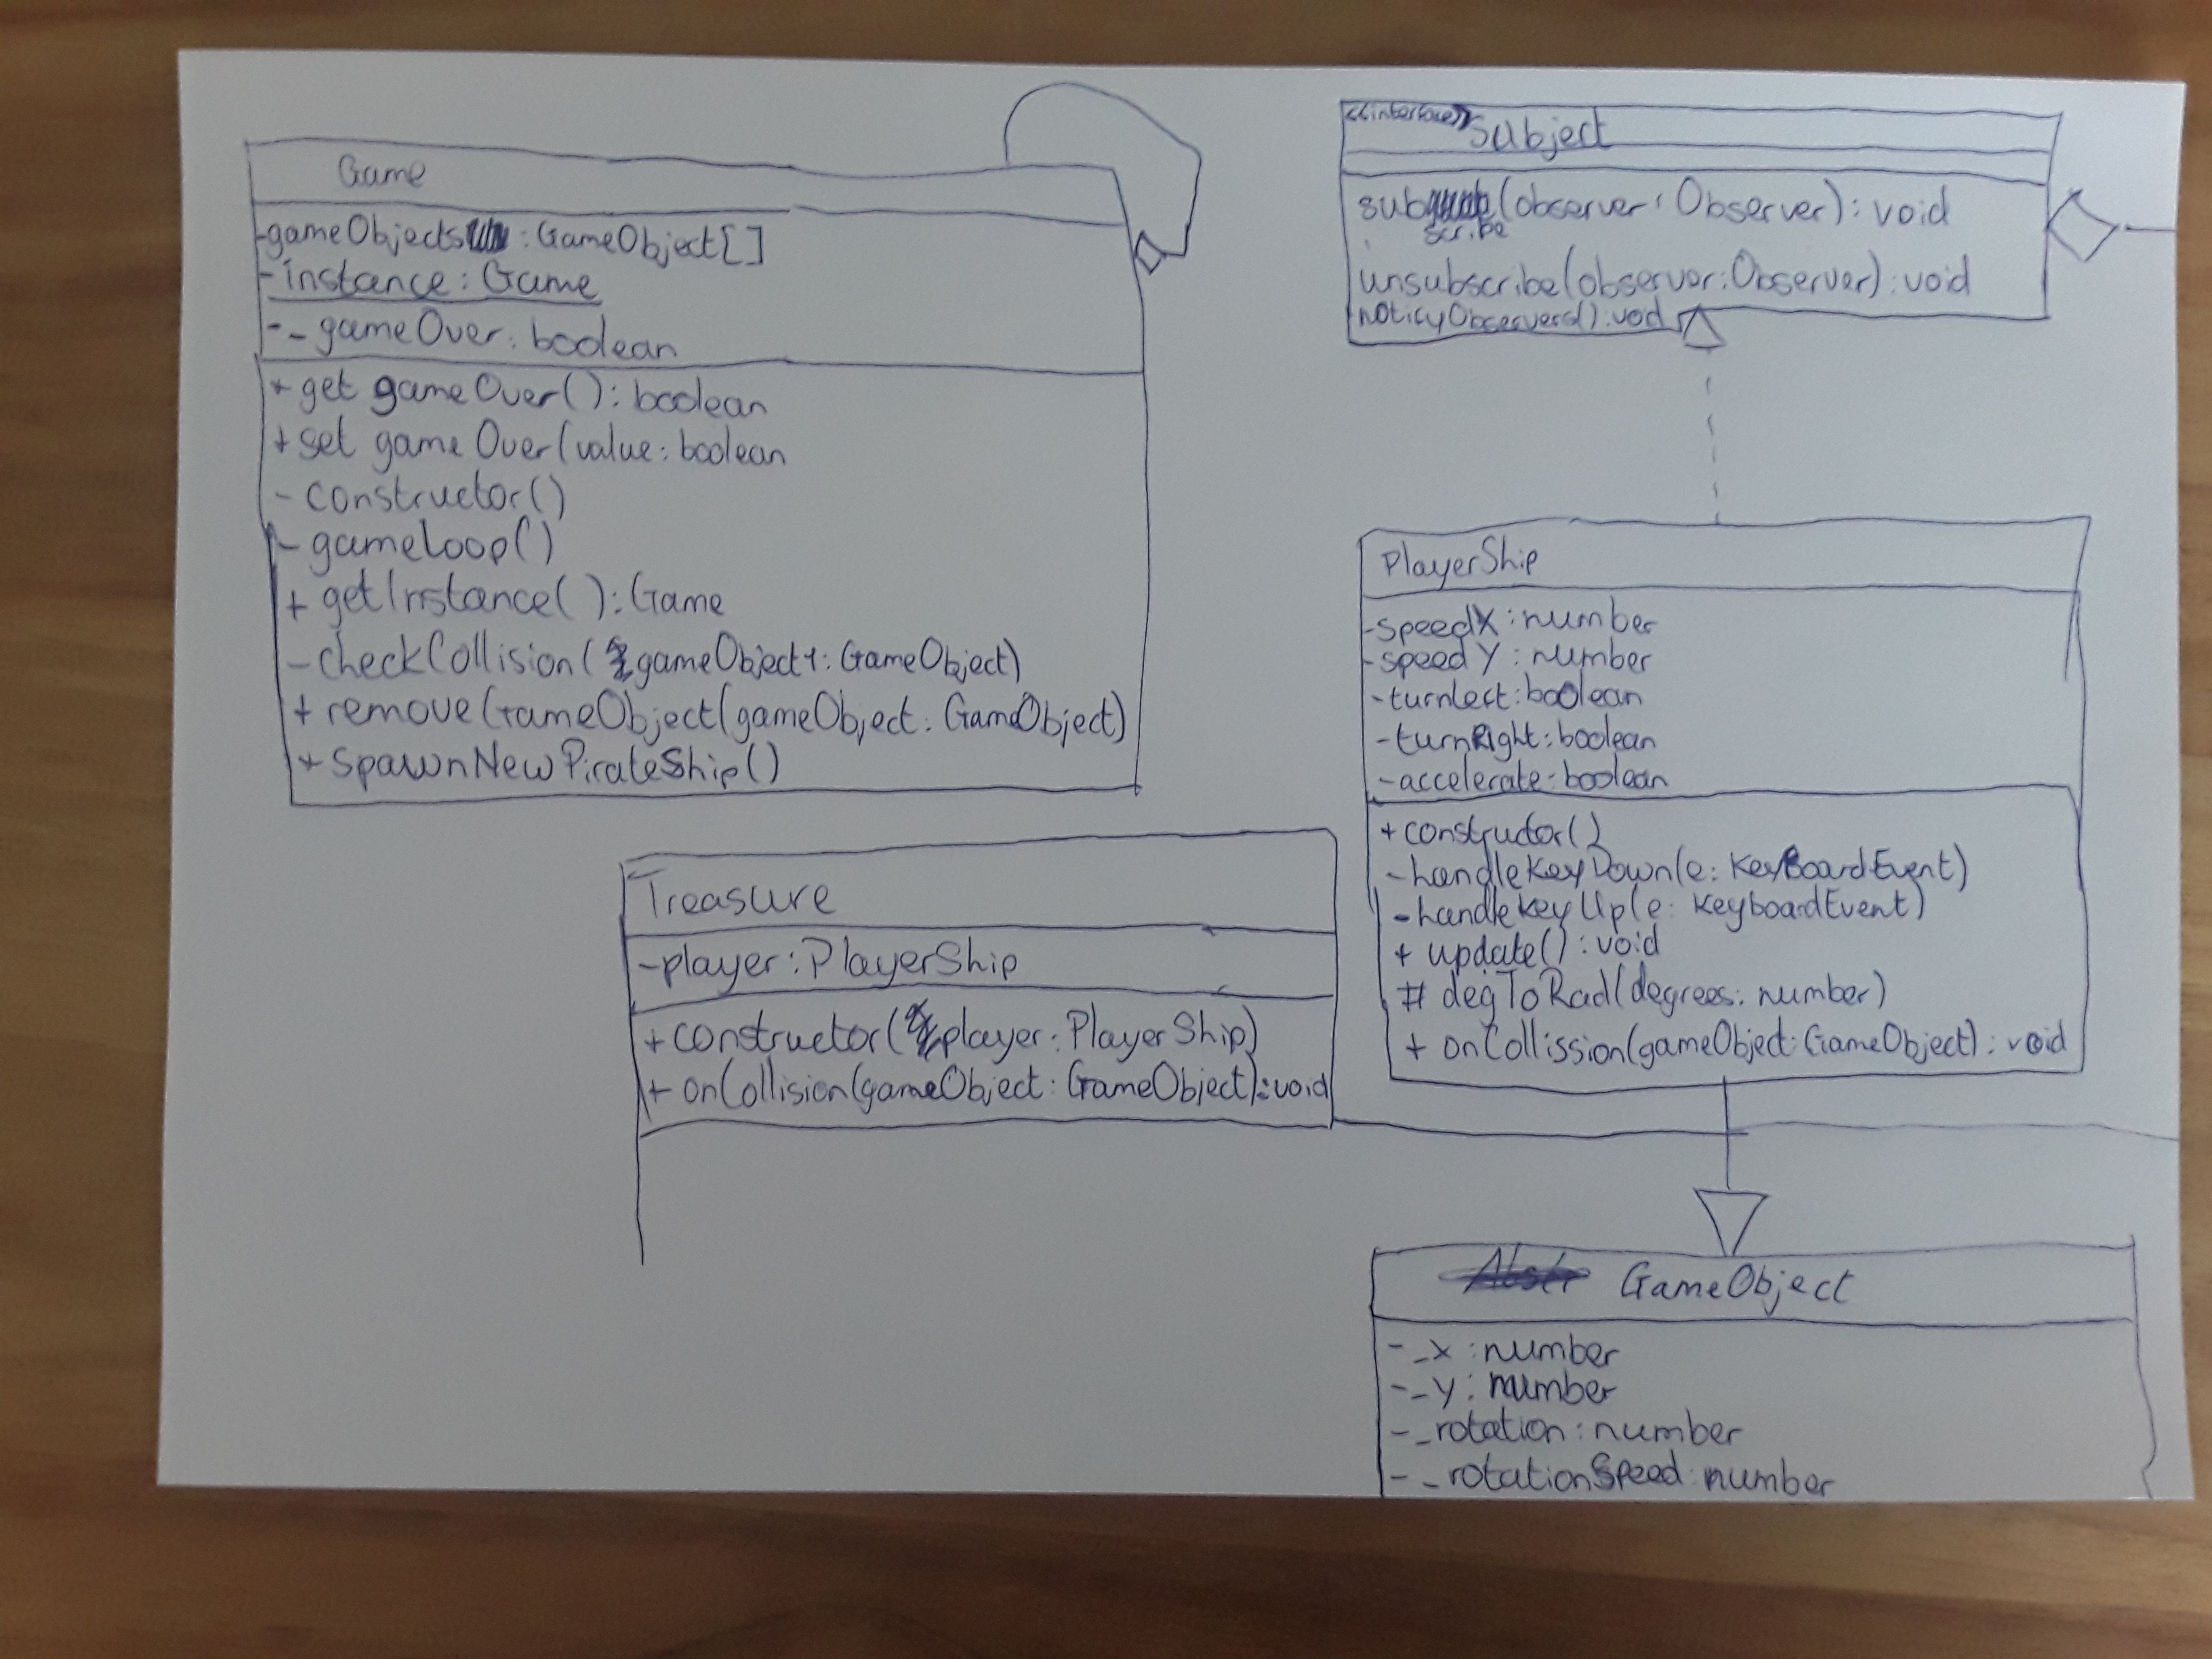 Game
-gameObjects : GameObject[]
-instance: Game
- _gameOver: boolean
+ get gameOver(): boolean
+ set gameOver(value: boolean
- constructor()
- gameLoop()
+ getInstance(): Game
- checkCollision( gameObject1: GameObject)
+ removeGameObject(gameObject: GameObject)
+ SpawnNewPirateShip()
<<interface>>
Subject
subscribe(observer: Observer): void
unsubscribe(observer: Observer): void
notifyObservers(): void
PlayerShip
-speedX: number
-speedY: number
-turnLeft: boolean
-turnRight: boolean
-accelerate: boolean
+constructor()
-handleKeyDown(e: KeyBoardEvent)
-handleKeyUp(e: KeyboardEvent)
+ update(): void
# degToRad(degrees: number)
+ onCollission(gameObject: GameObject): void
Treasure
-player: PlayerShip
+constructor( player: PlayerShip)
+ onCollision(gameObject: GameObject): void
GameObject
- _x: number
- _y: number
- _rotation: number
- _rotationSpeed: number